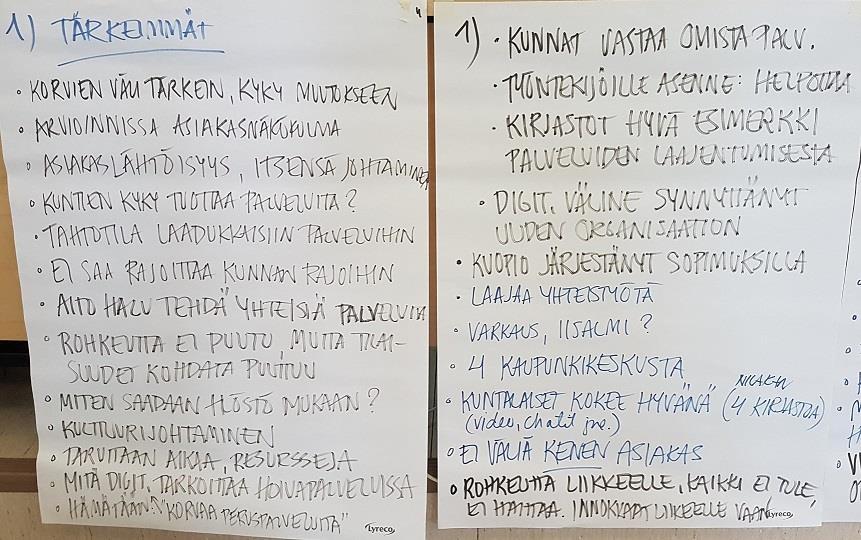 1) TÄRKEIMMÄT
• KORVIEN VÄLI TÄRKEIN, KYKY MUUTOKSEEN
• ARVIOINNISSA ASIAKASNÄKÖKULMA
• ASIAKASLÄHTÖISYYS, ITSENSÄ JOHTAMINEN
• KUNTIEN KYKY TUOTTAA PALVELUITA?
• TAHTOTILA LAADUKKAISIIN PALVELUIHIN
• EI SAA RAJOITTAA KUNNAN RAJOIHIN
• AITO HALU TEHDÄ YHTEISIÄ PALVELUITA
• ROHKEUTTA EI PUUTU, MUITA TILAI-
SUUDET KOHDATA PUUTTUU
• MITEN SAADAAN HLÖSTÖ MUKAAN?
• KULTTUURIJOHTAMINEN
• TARVITAAN AIKAA, RESURSSEJA
• MITÄ DIGIT. TARKOITTAA HOIVAPALVELUISSA
• HÄMÄTÄÄN: "KORVAA PERUSPALVELUITA"
Lyreco
1) • KUNNAT VASTAA OMISTA PALV.
• TYÖNTEKIJÖILLE ASENNE: HELPOTTAA
• KIRJASTOT HYVÄ ESIMERKKI
PALVELUIDEN LAAJENTUMISESTA
• DIGIT. VÄLINE SYNNYTTÄNYT
UUDEN ORGANISAATION
• KUOPIO JÄRJESTÄNYT SOPIMUKSILLA
• LAAJAA YHTEISTYÖTÄ
• VARKAUS, IISALMI?
• 4 KAUPUNKIKESKUSTA
• KUNTALAISET KOKEE HYVÄNÄ (4 KIRJASTOA)
(video, chatit jne.)
• EI VÄLIÄ KENEN ASIAKAS
• ROHKEUTTA LIIKKEELLE, KAIKKI EI TULE,
EI HAITTAA. INNOKKAAT LIIKEELLE VAAN.
Lyreco